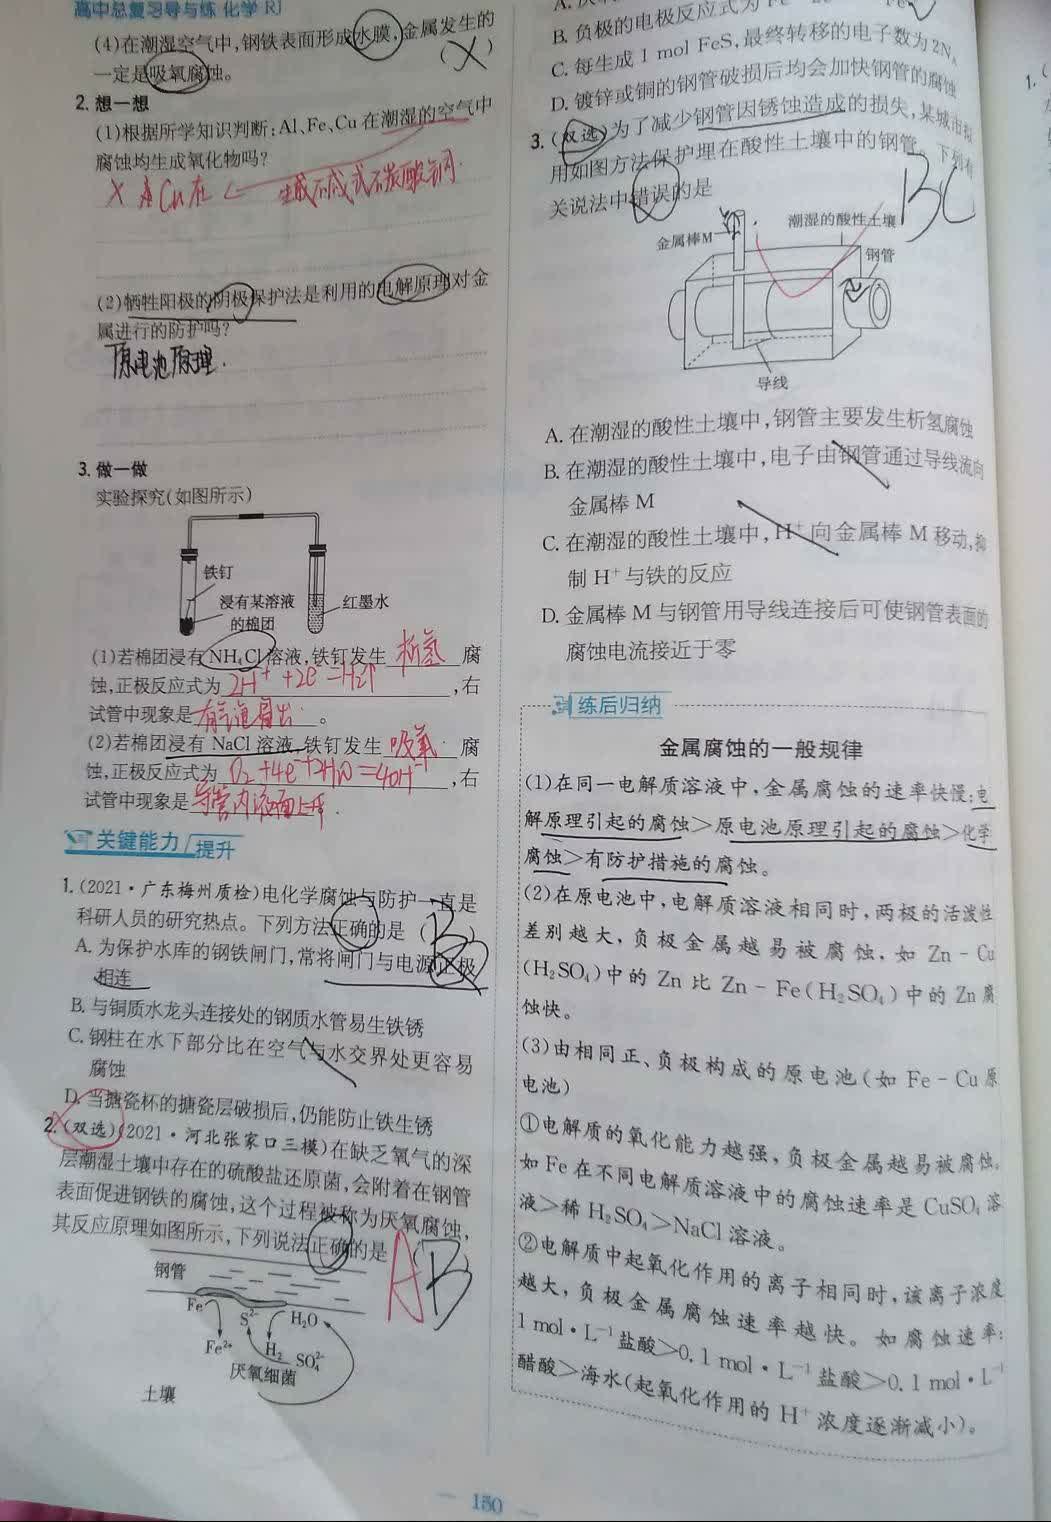 高中总复习导与练 化学 RJ
(4)在潮湿空气中,钢铁表面形成水膜,金属发生的
一定是吸氧腐蚀。 (X)
2. 想一想
(1)根据所学知识判断:Al、Fe、Cu 在潮湿的空气中
腐蚀均生成氧化物吗?
(2)牺牲阳极的阴极保护法是利用的电解原理对金
属进行的防护吗?
原电池原理.
3. 做一做
实验探究(如图所示)
铁钉
浸有某溶液
的棉团
红墨水
(1)若棉团浸有 NH₄Cl 溶液,铁钉发生 析氢 腐
蚀,正极反应式为 2H⁺+2e⁻=H₂↑ ,右
试管中现象是 有气泡冒出 。
(2)若棉团浸有 NaCl 溶液,铁钉发生 吸氧 腐
蚀,正极反应式为 O₂+4e⁻+2H₂O=4OH⁻ ,右
试管中现象是 导管内液面上升 .
关键能力 提升
1. (2021·广东梅州质检)电化学腐蚀与防护一直是
科研人员的研究热点。下列方法正确的是 (B)
A. 为保护水库的钢铁闸门,常将闸门与电源正极
相连
B. 与铜质水龙头连接处的钢质水管易生铁锈
C. 钢柱在水下部分比在空气与水交界处更容易
腐蚀
D. 当搪瓷杯的搪瓷层破损后,仍能防止铁生锈
2. (双选)(2021·河北张家口三模)在缺乏氧气的深
层潮湿土壤中存在的硫酸盐还原菌,会附着在钢管
表面促进钢铁的腐蚀,这个过程被称为厌氧腐蚀,
其反应原理如图所示,下列说法正确的是 AB
钢管
Fe
S²⁻
H₂O
Fe²⁺
H₂
SO₄²⁻
厌氧细菌
土壤
B. 负极的电极反应式为 Fe
C. 每生成 1 mol FeS,最终转移的电子数为 2Nₐ
D. 镀锌或铜的钢管破损后均会加快钢管的腐蚀
3. (双选)为了减少钢管因锈蚀造成的损失,某城市
用如图方法保护埋在酸性土壤中的钢管。下列有
关说法中错误的是 BC
金属棒M
潮湿的酸性土壤
钢管
导线
A. 在潮湿的酸性土壤中,钢管主要发生析氢腐蚀
B. 在潮湿的酸性土壤中,电子由钢管通过导线流向
金属棒 M
C. 在潮湿的酸性土壤中,H⁺向金属棒 M 移动,抑
制 H⁺与铁的反应
D. 金属棒 M 与钢管用导线连接后可使钢管表面的
腐蚀电流接近于零
练后归纳
金属腐蚀的一般规律
(1)在同一电解质溶液中,金属腐蚀的速率快慢:电
解原理引起的腐蚀>原电池原理引起的腐蚀>化学
腐蚀>有防护措施的腐蚀。
(2)在原电池中,电解质溶液相同时,两极的活泼性
差别越大,负极金属越易被腐蚀,如 Zn-Cu
(H₂SO₄)中的 Zn 比 Zn-Fe(H₂SO₄)中的 Zn 腐
蚀快。
(3)由相同正、负极构成的原电池(如 Fe-Cu 原
电池)
①电解质的氧化能力越强,负极金属越易被腐蚀。
如 Fe 在不同电解质溶液中的腐蚀速率是 CuSO₄ 溶
液>稀 H₂SO₄>NaCl 溶液。
②电解质中起氧化作用的离子相同时,该离子浓度
越大,负极金属腐蚀速率越快。如腐蚀速率:
1 mol·L⁻¹ 盐酸>0.1 mol·L⁻¹ 盐酸>0.1 mol·L⁻¹
醋酸>海水(起氧化作用的 H⁺ 浓度逐渐减小)。
150